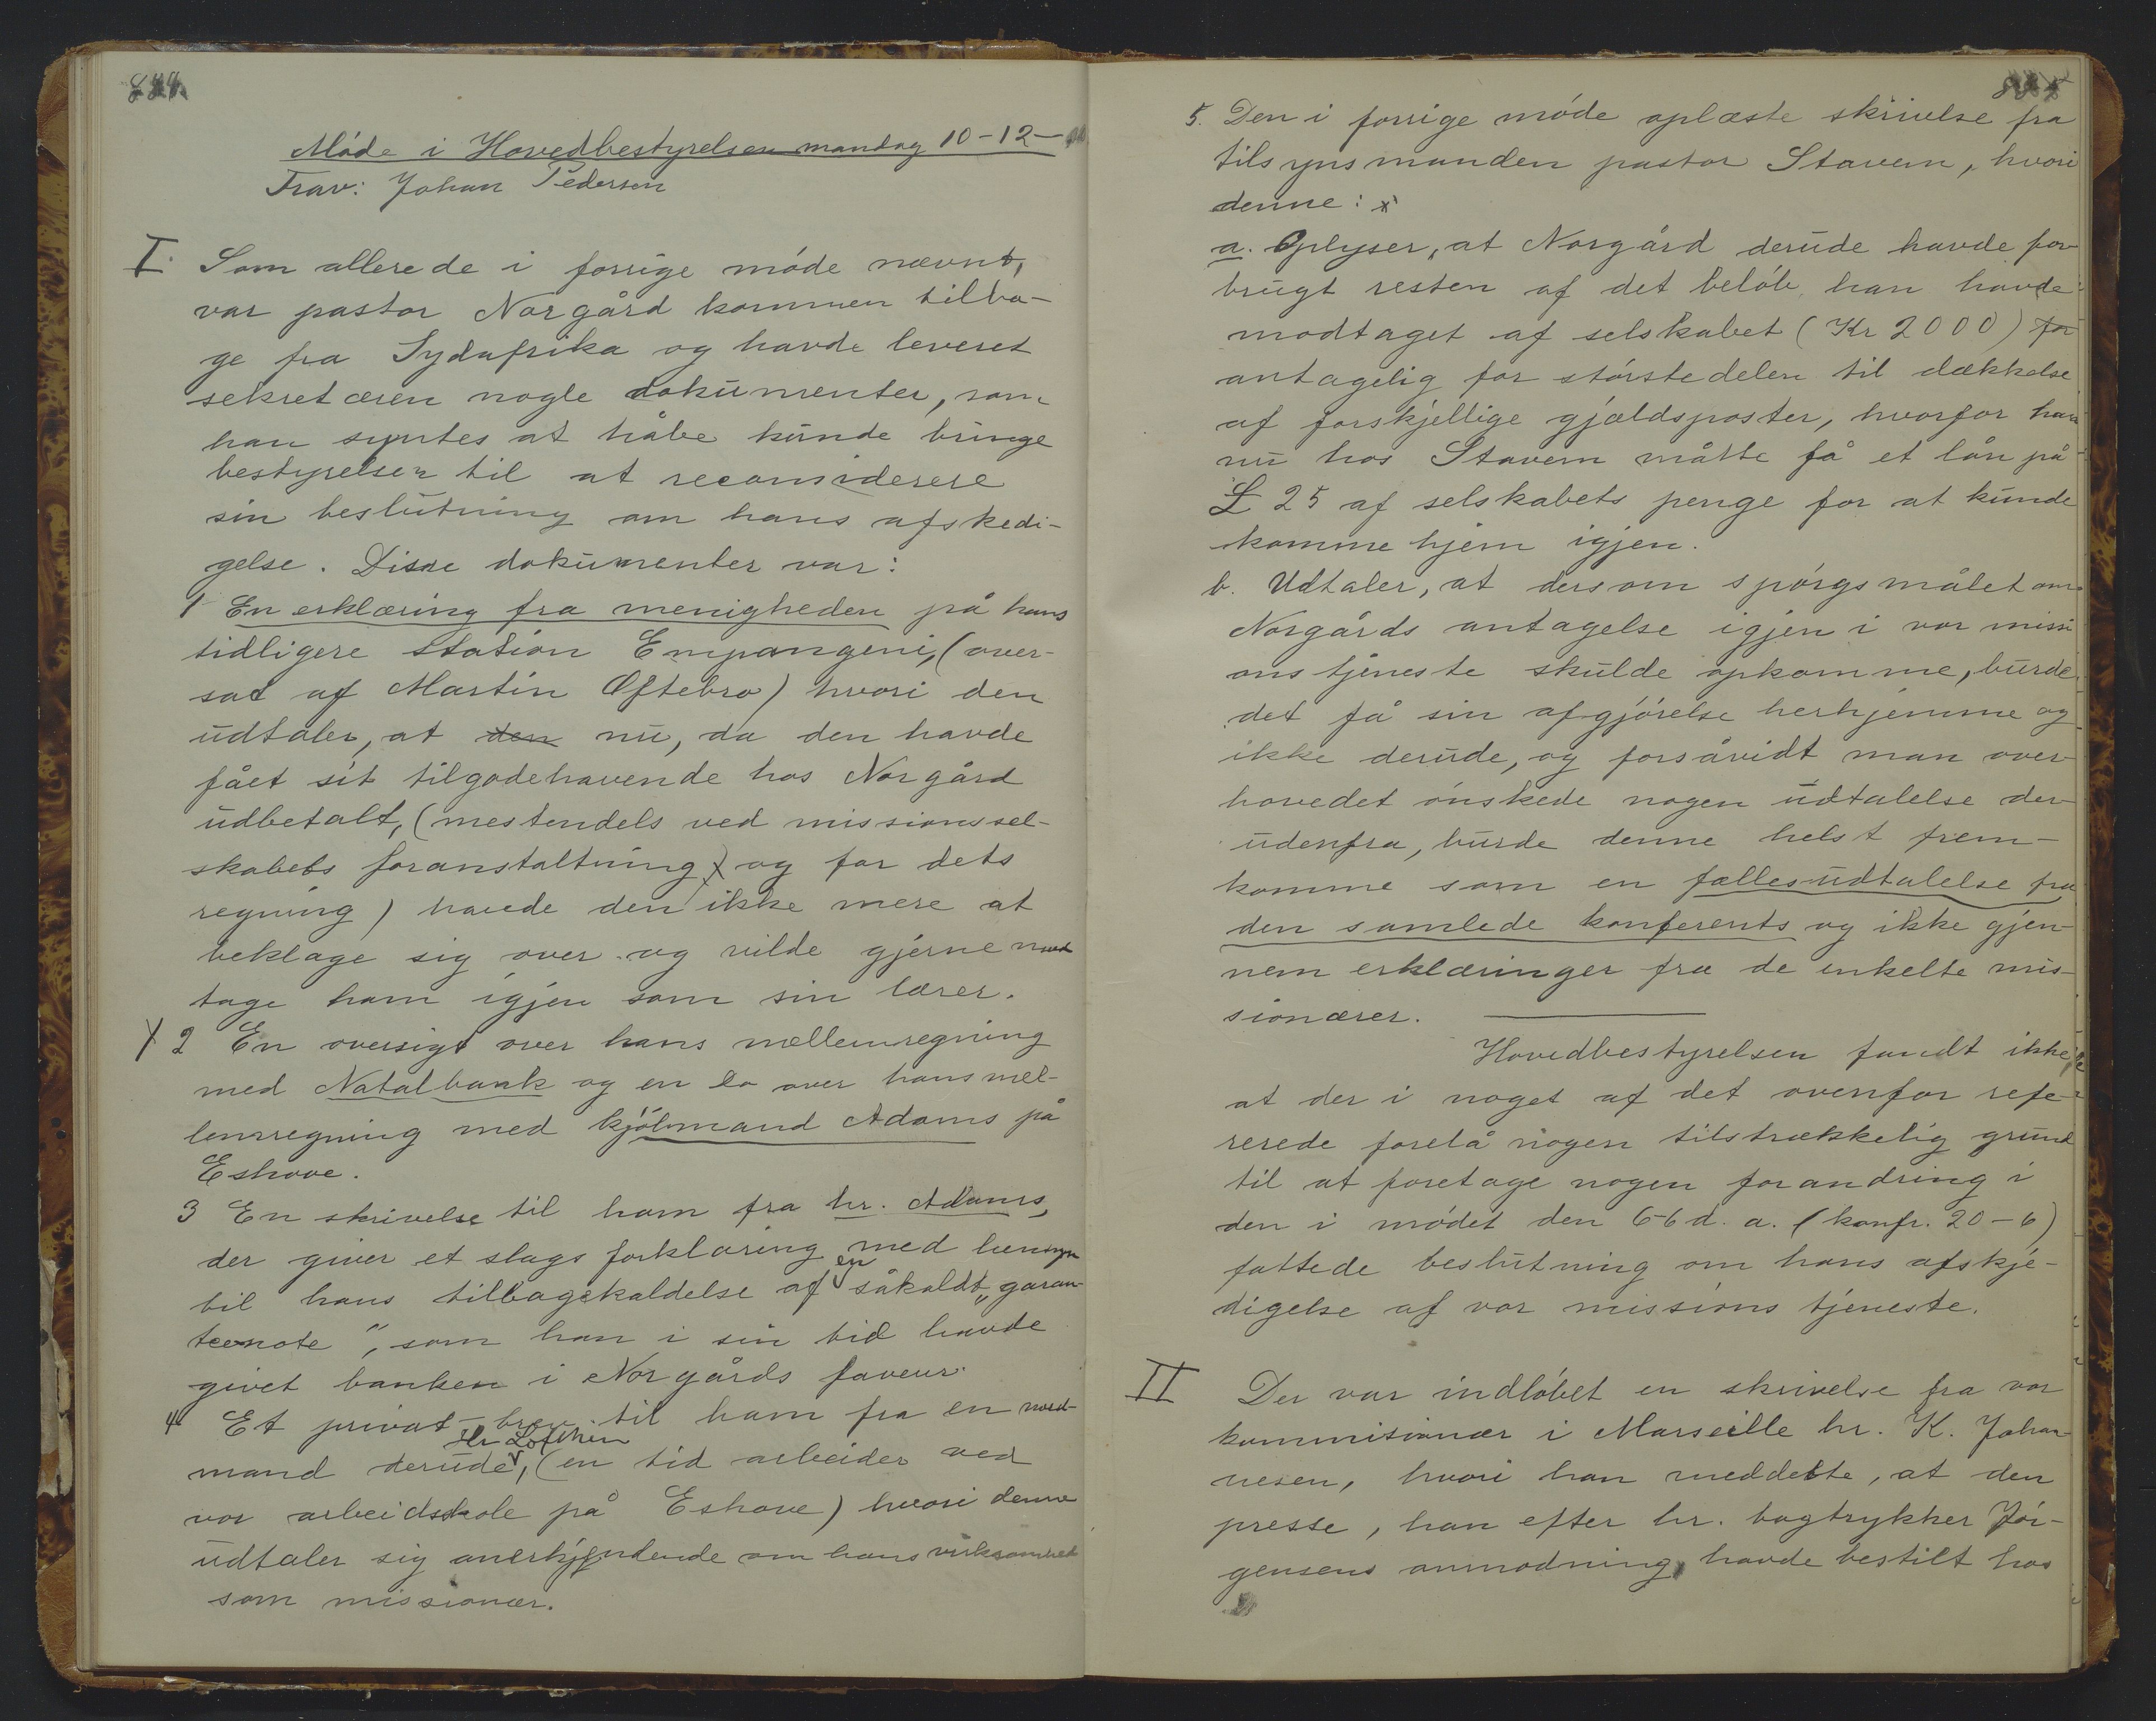 Møde i Hovedbestyrelsen mandag 10-12-
Frav: Johan Pedersen
I. Som allerede i forrige møde nævnt,
var pastor Norgård kommen tilba-
ge fra Sydafrika og havde leveret
sekretæren nogle dokumenter, som
han syntes at håbe kunde bringe
bestyrelsen til at reconsiderere
sin beslutning om hans afskedi-
gelse. Disse dokumenter var:
1 En erklæring fra menigheden på hans
tidligere station Empangeni, (over-
sat af Martin Oftebro) hvori den
udtaler, at den nu, da den havde
fået sit tilgodehavende hos Norgård
udbetalt, (mestendels ved missionssel-
skabets foranstaltning) og for dets
regning) havde den ikke mere at
beklage sig over og vilde gjerne mod
tage ham igjen som sin lærer.
2 En oversigt over hans mellemregning
med Natalbank og en do over hans mel-
lemregning med kjøbmand Adams på
Eshove.
3 En skrivelse til ham fra hr. Adams,
der giver et slags forklaring med hensyn
til hans tilbagekaldelse af en såkaldt „garan-
teenote“, som han i sin tid havde
givet banken i Norgårds faveur.
4 Et privat-brev til ham fra en nord-
mand derude, Hr Lofthus (en tid arbeider ved
vor arbeidsskole på Eshove) hvori denne
udtaler sig anerkjendende om hans virksomhed
som missionær.
5. Den i forrige møde oplæste skrivelse fra
tilsynsmanden pastor Stavem, hvori
denne: x
a. Oplyser, at Norgård derude havde for-
brugt resten af det beløb han havde
modtaget af selskabet (Kr 2000) for
antagelig for størstedelen til dækkelse
af forskjellige gjældsposter, hvorfor han
nu hos Stavem måtte få et lån på
£ 25 af selskabets penge for at kunde
komme hjem igjen.
b. Udtaler, at dersom spørgsmålet om
Norgårds antagelse igjen i vor missi
onstjeneste skulde opkomme, burde
det få sin afgjørelse herhjemme og
ikke derude, og forsåvidt man over-
hovedet ønskede nogen udtalelse der-
udenfra, burde denne helst frem-
komme som en fælles-udtalelse fra
den samlede konferents og ikke gjen-
nem erklæringer fra de enkelte mis-
sionærer.
Hovedbestyrelsen fandt ikke,
at der i noget af det ovenfor refe-
rerede forelå nogen tilstrækkelig grund
til at foretage nogen forandring i
den i mødet den 6-6 d. a. (konfr. 20-6)
fattede beslutning om hans afskje-
digelse af vor missions tjeneste.
II Der var indløbet en skrivelse fra vor
kommisionær i Marseille hr. K. Johan-
nesen, hvori han meddelte, at den
presse, han efter hr. bogtrykker Jør-
gensens anmodning havde bestilt hos